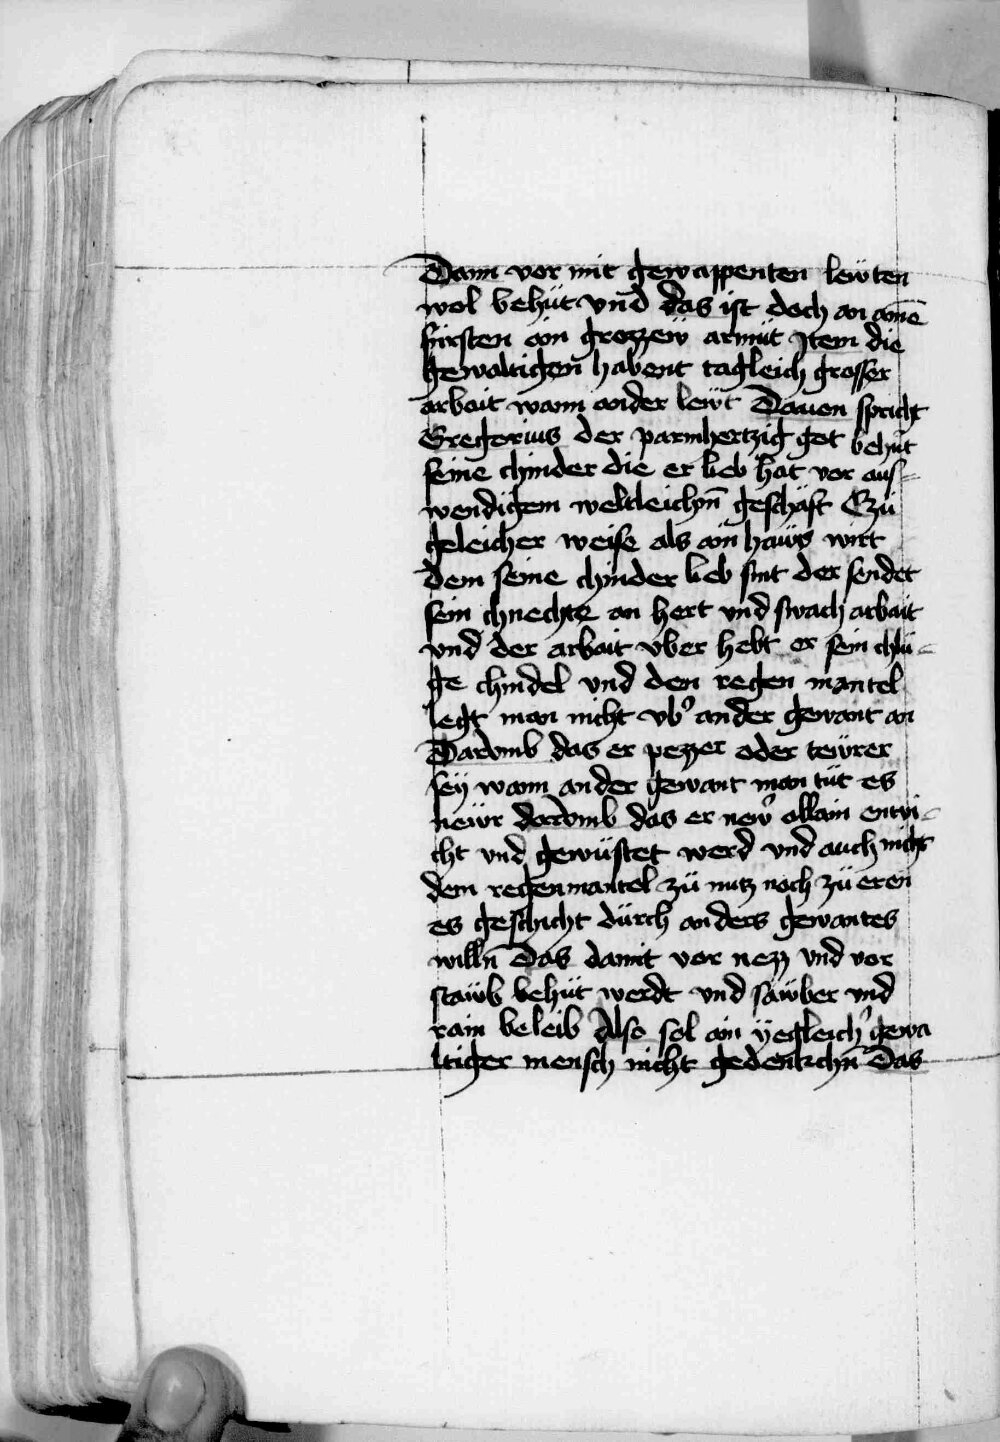 Dann vor mit gewappenten lewten
wol behüt vnd das ist doch an aine͂
fürsten ain grozzew armüt Item die
gewaltigen habent tagleich grosser
arbait wann ander lewt Dauon spricht
Gregorius der parmhertzig got behüt
seine chinder die er lieb hat vor aus-
wendigem weltleichn̄ geschäft Czü
geleicher weise als ain haws wirt
dem seine chinder lieb sint der sendet
sein chnechte an hert vnd swach arbait
vnd der arbait vber hebt er sein chlü-
ge chindel vnd den regen mantel
legt man nicht vb' ander gewant an
Darvmb das er pezzer oder tewrer
sey wann ander gewant man tüt es
newr darvmb das er new' allain entwi-
cht vnd gewüstet werd vnd auch nicht
dem regenmantel zü nutz noch zü eren
es geschicht dürch anders gewantes
willn̄ Das damit vor nezz vnd vor
stawb behüt werdt vnd sawber vnd
rain beleib Also sol ain yegleich' gewa
ltiger mensch nicht gedenkchn̄ Das